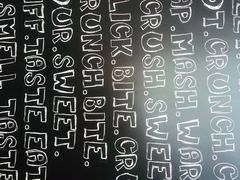 OT.CRUNCH.
AP.MASH.WAR
.CRUSH.
LICK.BITE.CRU
CRUNCH.BITE.
OUR.SWEET.
FF.TASTE.EAT
SMELL.TASTE